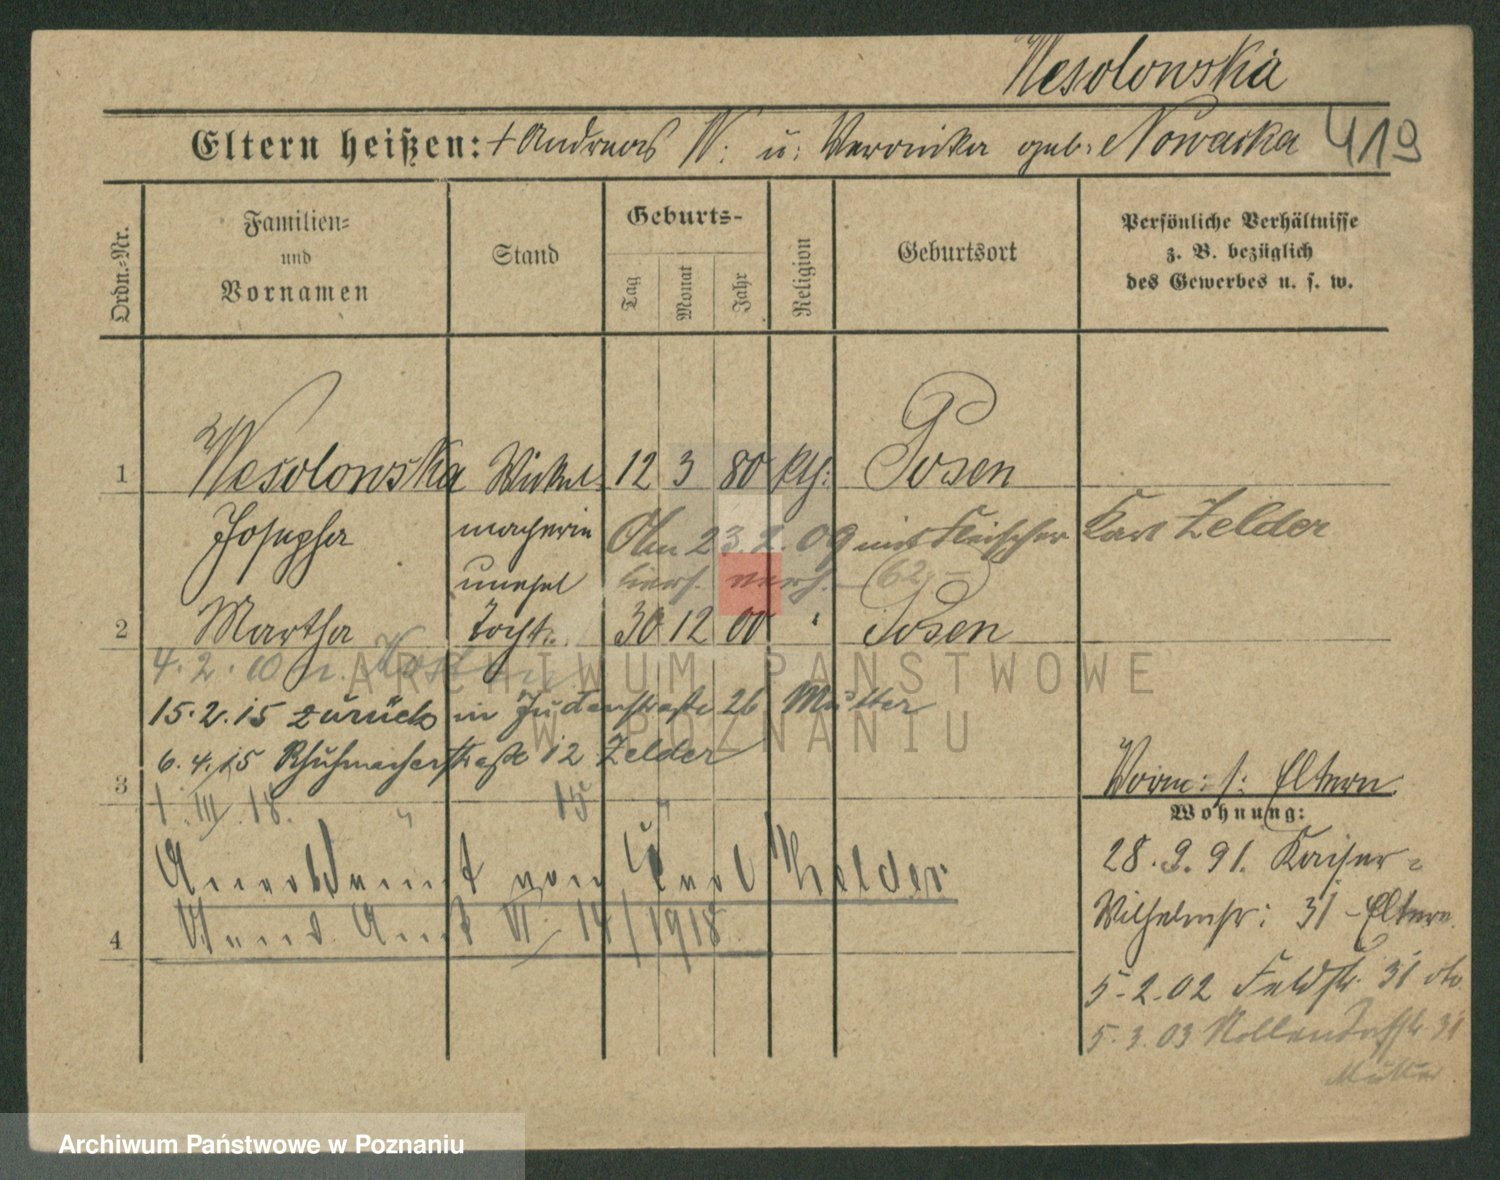 Wesolowska
Eltern heißen: + Andreas W. u. Veronika geb. Nowacka 419
Ordn.-Nr.
Familien- und Vornamen
Stand
Geburts-
Tag Monat Jahr
Religion
Geburtsort
Persönliche Verhältnisse
z. B. bezüglich
des Gewerbes u. s. w.
1 Wesolowska Wickel- 12 3 80 kth. Posen
Josepha macherin Am 23.2.09 mit Fleischer Karl Zelder
unehel hiers. verh. 62
2 Martha Tocht. 30 12 00 " Posen
4.2.10 n.
15.2.15 zurück in Judenstraße 26 Mutter
6.4.15 Schuhmacherstraße 12 Zelder
3
1. III. 18. " 15 "
von Karl Zelder
4 VI. 14/1918.
Vorm: s: Eltern
Wohnung:
28.9.91. Kaiser-
Wilhelmstr: 31 Eltern
5.2.02 Feldstr. 31 do.
5.3.03 Nollendorfstr. 31
Mutter
ARCHIWUM PAŃSTWOWE
W POZNANIU
Archiwum Państwowe w Poznaniu